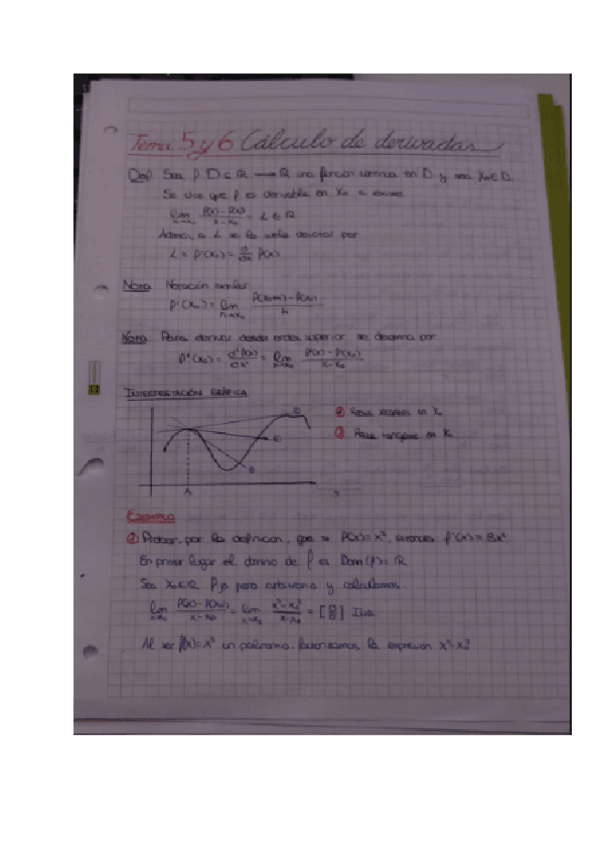 Tema 5 y 6 Cálculo de derivadas
Def. Sea f: D ⊂ ℝ → ℝ una función continua en D y sea x₀ ∈ D.
Se dice que f es derivable en x₀ si existe
lim x→x₀ f(x) - f(x₀) / x - x₀ = L ∈ ℝ
Además, a L se le suele denotar por
L = f'(x₀) = d/dx f(x)
Nota Notación similar
f'(x₀) = lim f(x₀+h) - f(x₀) / h
Nota Para derivar orden superior se denomina por
f''(x₀) = d² f(x) / dx² = lim x→x₀ f'(x) - f'(x₀) / x - x₀
INTERPRETACIÓN GRÁFICA
Rectas secantes en x₀
Recta tangente en x₀
EJEMPLO
Probar, por la definición, que si f(x) = x³, entonces f'(x) = 3x²
En primer lugar el dominio de f es Dom(f) = ℝ
Sea x₀ ∈ ℝ fijo pero arbitrario y calculamos
lim x→x₀ f(x) - f(x₀) / x - x₀ = lim x→x₀ x³ - x₀³ / x - x₀ = [0/0] Ind
Al ser f(x) = x³ un polinomio, factorizamos la expresión x³ - x₀³